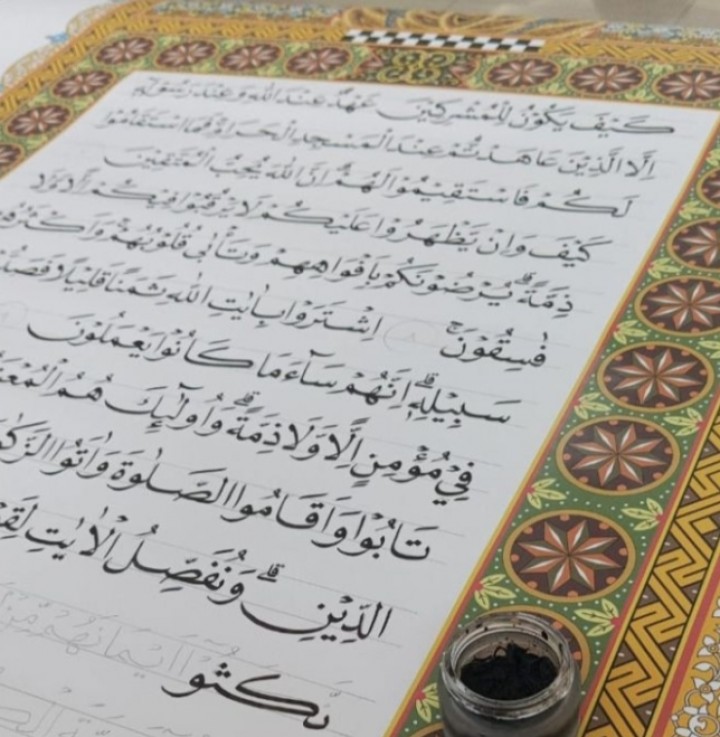 كَيْفَ يَكُوْنُ لِلْمُشْرِكِيْنَ عَهْدٌ عِنْدَ اللّٰهِ وَعِنْدَ رَسُوْلِهٖٓ
اِلَّا الَّذِيْنَ عَاهَدْتُّمْ عِنْدَ الْمَسْجِدِ الْحَرَامِۚ فَمَا اسْتَقَامُوْا
لَكُمْ فَاسْتَقِيْمُوْا لَهُمْۗ اِنَّ اللّٰهَ يُحِبُّ الْمُتَّقِيْنَ
كَيْفَ وَاِنْ يَّظْهَرُوْا عَلَيْكُمْ لَا يَرْقُبُوْا فِيْكُمْ اِلًّا وَّلَا
ذِمَّةًۗ يُرْضُوْنَكُمْ بِاَفْوَاهِهِمْ وَتَأْبٰى قُلُوْبُهُمْ وَاَكْثَرُهُمْ
فٰسِقُوْنَۚ ٨ اِشْتَرَوْا بِاٰيٰتِ اللّٰهِ ثَمَنًا قَلِيْلًا فَصَدُّ
سَبِيْلِهٖۗ اِنَّهُمْ سَاۤءَ مَا كَانُوْا يَعْمَلُوْنَ
فِيْ مُؤْمِنٍ اِلًّا وَّلَا ذِمَّةًۗ وَاُولٰۤىِٕكَ هُمُ الْمُعْتَ
تَابُوْا وَاَقَامُوا الصَّلٰوةَ وَاٰتَوُا الزَّكٰو
الدِّيْنِۗ وَنُفَصِّلُ الْاٰيٰتِ لِقَوْ
نكثوٓا اَيْمَانَهُمْ مِّنْ